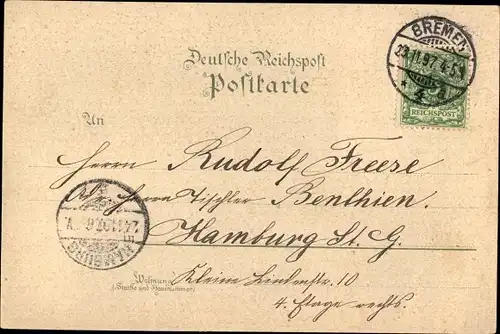 Deutsche Reichspost
Postkarte
BREMEN
23.11.97.4-5N
REICHSPOST
An
Herrn Rudolf Freese
Adr. Herrn Tischler Benthien.
Hamburg St. G.
HAMBURG
Wohnung
(Straße und Hausnummer)
Kleine Lindenstr. 10
4. Etage rechts.